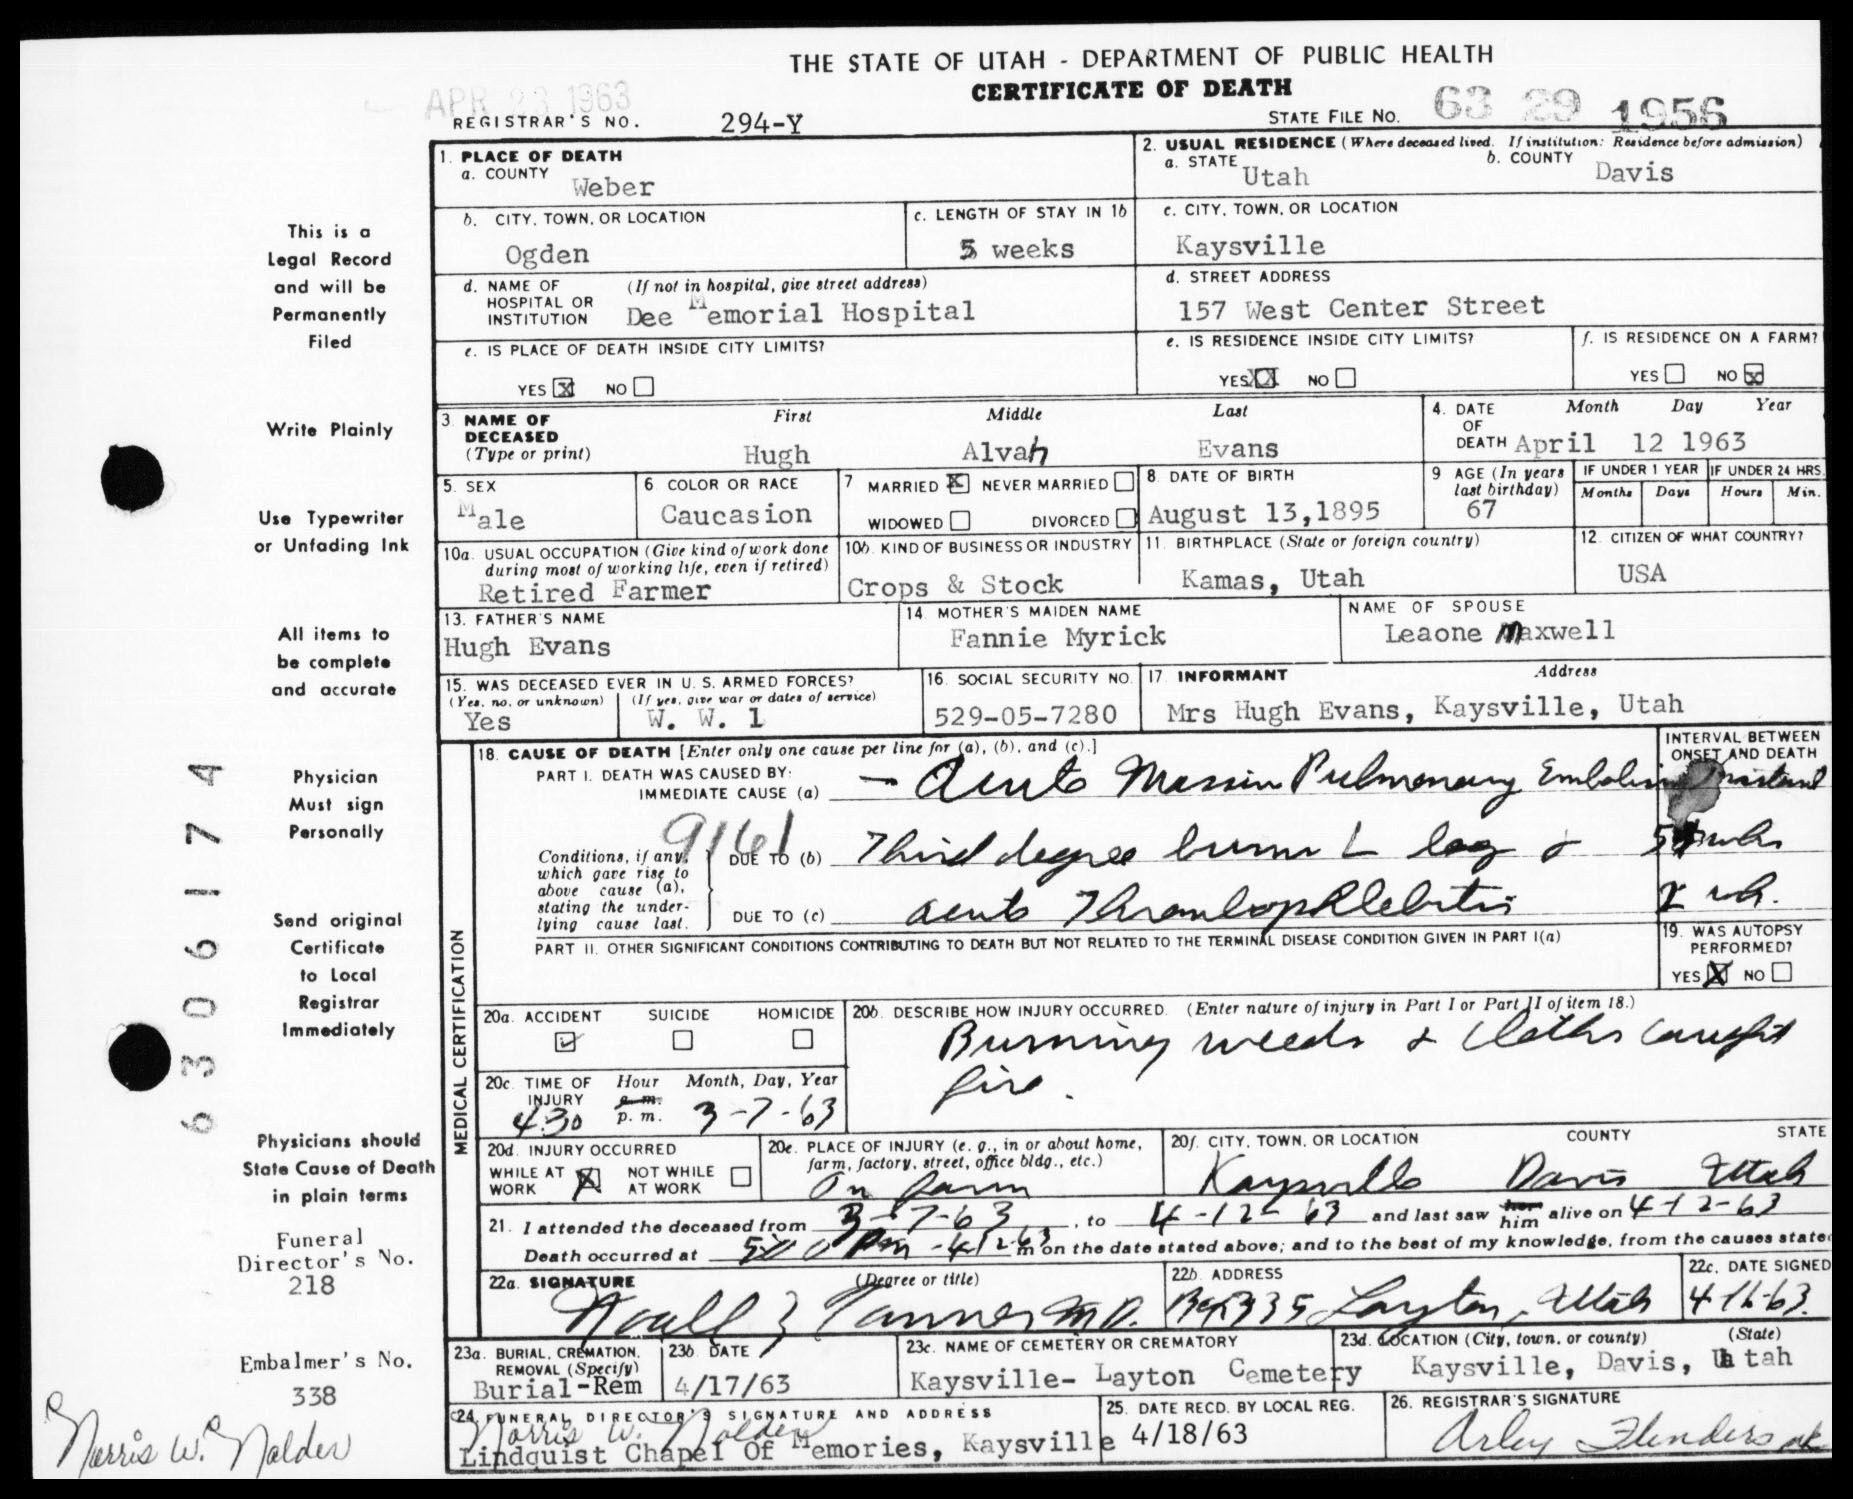 THE STATE OF UTAH - DEPARTMENT OF PUBLIC HEALTH
CERTIFICATE OF DEATH
APR 23 1963
REGISTRAR'S NO. 294-Y
STATE FILE NO. 63 29 1956
This is a
Legal Record
and will be
Permanently
Filed
Write Plainly
Use Typewriter
or Unfading Ink
All items to
be complete
and accurate
Physician
Must sign
Personally
Send original
Certificate
to Local
Registrar
Immediately
Physicians should
State Cause of Death
in plain terms
Funeral
Director's No.
218
Embalmer's No.
338
Norris W. Nalder
6306174
1. PLACE OF DEATH
a. COUNTY Weber
2. USUAL RESIDENCE (Where deceased lived. If institution: Residence before admission)
a. STATE Utah b. COUNTY Davis
b. CITY, TOWN, OR LOCATION
Ogden
c. LENGTH OF STAY IN 1b
5 weeks
c. CITY, TOWN, OR LOCATION
Kaysville
d. NAME OF HOSPITAL OR INSTITUTION (If not in hospital, give street address)
Dee Memorial Hospital
d. STREET ADDRESS
157 West Center Street
e. IS PLACE OF DEATH INSIDE CITY LIMITS?
YES X NO
e. IS RESIDENCE INSIDE CITY LIMITS?
YES XX NO
f. IS RESIDENCE ON A FARM?
YES NO X
3. NAME OF DECEASED (Type or print)
First Middle Last
Hugh Alvah Evans
4. DATE OF DEATH Month Day Year
April 12 1963
5. SEX
Male
6. COLOR OR RACE
Caucasion
7 MARRIED X NEVER MARRIED
WIDOWED DIVORCED
8. DATE OF BIRTH
August 13,1895
9 AGE (In years last birthday)
67
IF UNDER 1 YEAR
Months Days
IF UNDER 24 HRS.
Hours Min.
10a. USUAL OCCUPATION (Give kind of work done during most of working life, even if retired)
Retired Farmer
10b. KIND OF BUSINESS OR INDUSTRY
Crops & Stock
11. BIRTHPLACE (State or foreign country)
Kamas, Utah
12. CITIZEN OF WHAT COUNTRY?
USA
13. FATHER'S NAME
Hugh Evans
14. MOTHER'S MAIDEN NAME
Fannie Myrick
NAME OF SPOUSE
Leaone Maxwell
15. WAS DECEASED EVER IN U. S. ARMED FORCES?
(Yes, no, or unknown) (If yes, give war or dates of service)
Yes W. W. 1
16. SOCIAL SECURITY NO.
529-05-7280
17. INFORMANT Address
Mrs Hugh Evans, Kaysville, Utah
MEDICAL CERTIFICATION
18. CAUSE OF DEATH [Enter only one cause per line for (a), (b), and (c).]
INTERVAL BETWEEN ONSET AND DEATH
PART I. DEATH WAS CAUSED BY:
IMMEDIATE CAUSE (a) - Acute Massive Pulmonary Embolism
9161
Conditions, if any, which gave rise to above cause (a), stating the underlying cause last.
DUE TO (b) Third degree burns L leg & 5 wks
DUE TO (c) acute Thrombophlebitis
PART II. OTHER SIGNIFICANT CONDITIONS CONTRIBUTING TO DEATH BUT NOT RELATED TO THE TERMINAL DISEASE CONDITION GIVEN IN PART I(a)
19. WAS AUTOPSY PERFORMED?
YES X NO
20a. ACCIDENT SUICIDE HOMICIDE
20b. DESCRIBE HOW INJURY OCCURRED. (Enter nature of injury in Part I or Part II of item 18.)
Burning weeds & Clothes caught
fire.
20c. TIME OF INJURY Hour Month, Day, Year
4:30 a. m. p. m. 3-7-63
20d. INJURY OCCURRED
WHILE AT WORK X NOT WHILE AT WORK
20e. PLACE OF INJURY (e. g., in or about home, farm, factory, street, office bldg., etc.)
On farm
20f. CITY, TOWN, OR LOCATION COUNTY STATE
Kaysville Davis Utah
21. I attended the deceased from 3-7-63, to 4-12-63 and last saw her him alive on 4-12-63
Death occurred at 5:00 Pm -4/12/63 m on the date stated above; and to the best of my knowledge, from the causes state
22a. SIGNATURE (Degree or title)
Noall Z Tanner M.D.
22b. ADDRESS
Box 335 Layton, Utah
22c. DATE SIGNED
4-16-63
23a. BURIAL, CREMATION, REMOVAL (Specify)
Burial-Rem
23b. DATE
4/17/63
23c. NAME OF CEMETERY OR CREMATORY
Kaysville- Layton Cemetery
23d. LOCATION (City, town, or county) (State)
Kaysville, Davis, Utah
24. FUNERAL DIRECTOR'S SIGNATURE AND ADDRESS
Norris W. Nalder
Lindquist Chapel Of Memories, Kaysville
25. DATE RECD. BY LOCAL REG.
4/18/63
26. REGISTRAR'S SIGNATURE
Arley Flinders